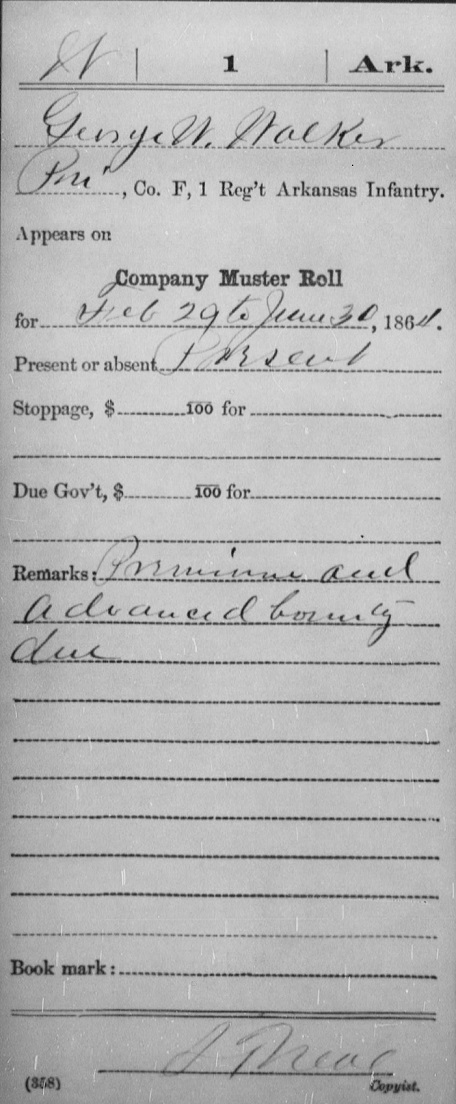 W | 1 | Ark.
George W. Walker
Pri, Co. F, 1 Reg't Arkansas Infantry.
Appears on
Company Muster Roll
for Feb 29 to June 30, 1864.
Present or absent Present
Stoppage, $ 100 for
Due Gov't, $ 100 for
Remarks: Premium and
advanced bounty
due
Book mark:
(358) Copyist.